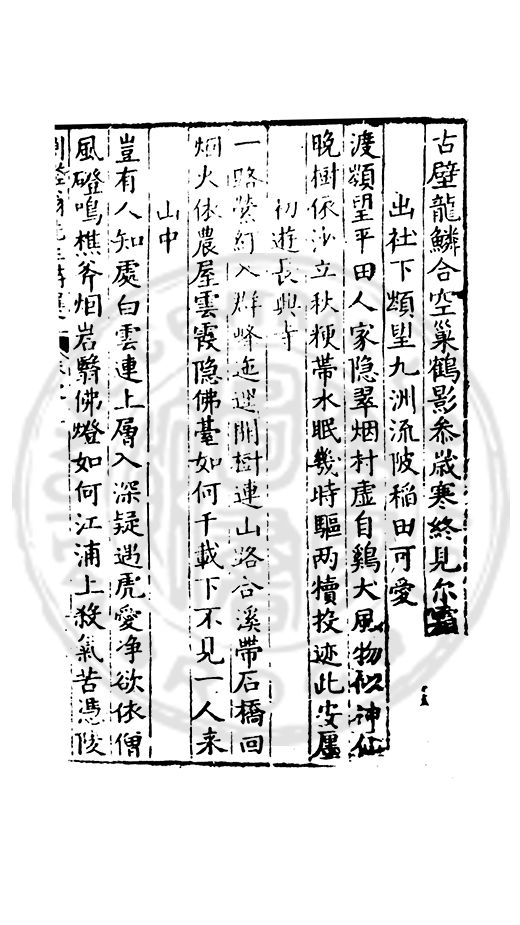 古壁龍鱗合空巢鶴影叅歳寒終見尔霜
出社下頫望九洲流陂稻田可愛
渡頫望平田人家隐翠烟村虚自鷄犬風物似神仙
晚樹依沙立秋粳帯水眠幾時驅两犢投迹此安廛
初遊長興寺
一路縈紆入群峰迤逕開樹連山路合溪帶石橋回
烟火依農屋雲霞隐佛臺如何千載下不見一人来
山中
豈有人知處白雲連上層入深疑遇虎愛净欲依僧
風磴鳴樵斧烟岩翳佛燈如何江浦上殺氣苦憑陵